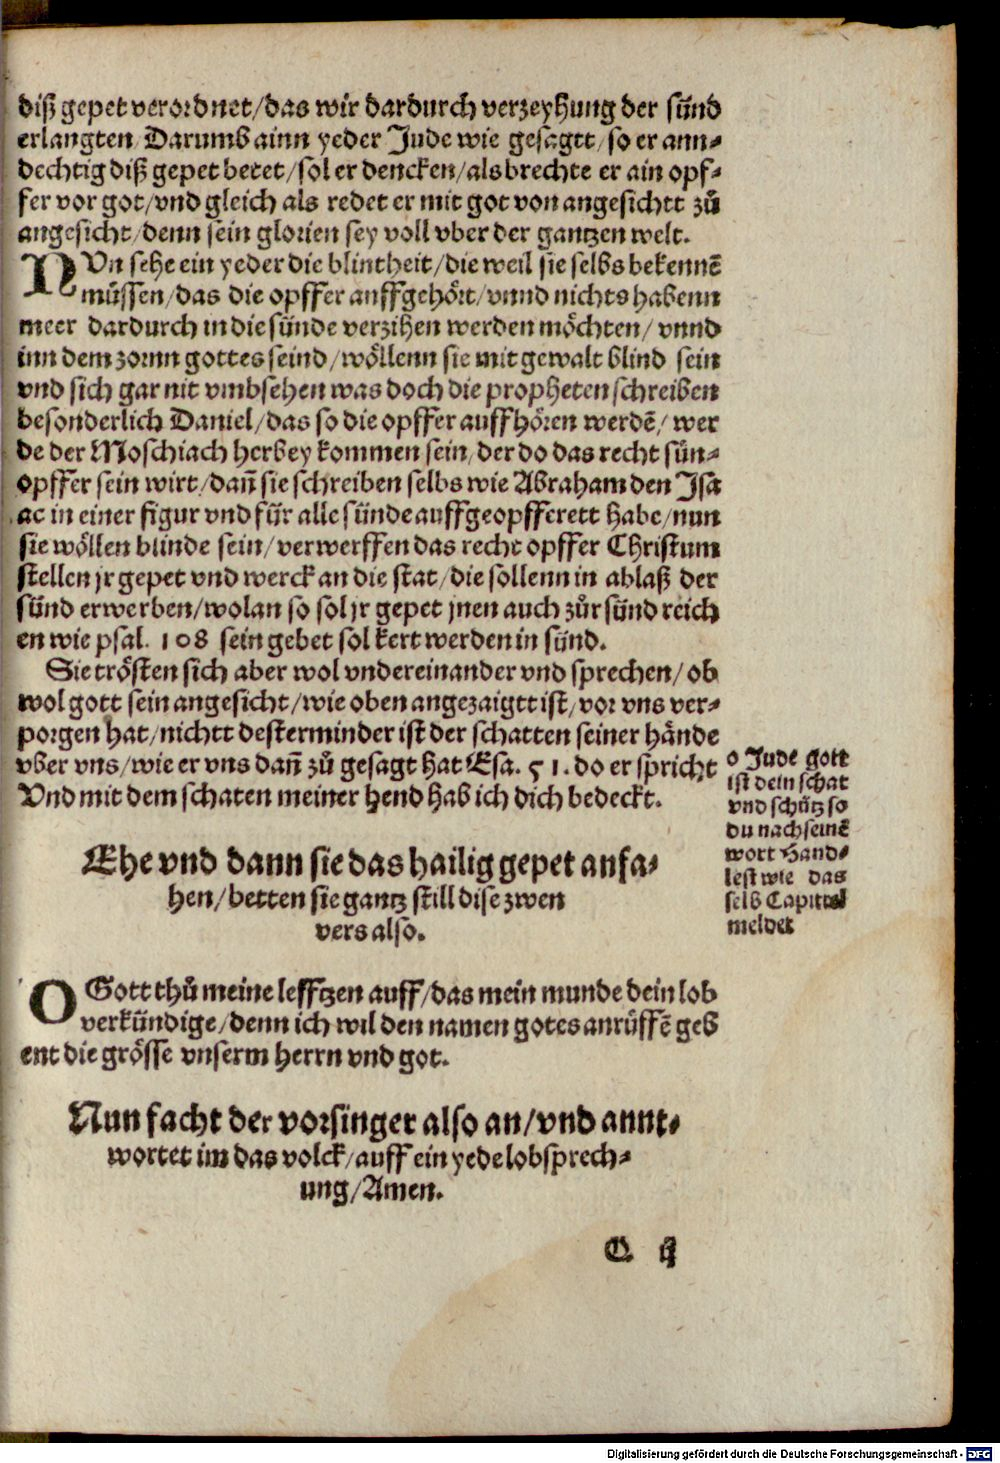 diß gepet verordnet/das wir dardurch verzeyhung der sünd
erlangten/Darumb ainn yeder Jude wie gesagtt/so er ann⸗
dechtig diß gepet betet/sol er dencken/als brechte er ain opf⸗
fer vor got/vnd gleich als redet er mit got von angesichtt zů
angesicht/denn sein glorien sey voll vber der gantzen welt.
NUn sehe ein yeder die blintheit/die weil sie selbs bekennẽ
müssen/das die opffer auffgehört/vnnd nichts habenn
meer dardurch in die sünde verzihen werden möchten/vnnd
inn dem zornn gottes seind/wöllenn sie mit gewalt blind sein
vnd sich gar nit vmbsehen was doch die propheten schreiben
besonderlich Daniel/das so die opffer auffhören werdẽ/wer
de der Moschiach herbey kommen sein/der do das recht sün⸗
opffer sein wirt/dañ sie schreiben selbs wie Abraham den Isa
ac in einer figur vnd für alle sünde auffgeopfferett habe/nun
sie wöllen blinde sein/verwerffen das recht opffer Christum
stellen jr gepet vnd werck an die stat/die sollenn in ablaß der
sünd erwerben/wolan so sol jr gepet jnen auch zůr sünd reich
en wie psal. 108 sein gebet sol kert werden in sünd.
Sie trösten sich aber wol vndereinander vnd sprechen/ob
wol gott sein angesicht/wie oben angezaigtt ist/vor vns ver⸗
porgen hat/nichtt desterminder ist der schatten seiner hände
vber vns/wie er vns dañ zů gesagt hat Esa. 51. do er spricht
Vnd mit dem schaten meiner hend hab ich dich bedeckt.
o Jude gott
ist dein schat
vnd schütz so
du nach seinẽ
wort Hand⸗
lest wie das
selb Capittel
meldet
Ehe vnd dann sie das hailig gepet anfa⸗
hen/betten sie gantz still dise zwen
vers also.
O Gott thů meine lefftzen auff/das mein munde dein lob
verkündige/denn ich wil den namen gotes anrüffẽ geb
ent die grösse vnserm herrn vnd got.
Nun facht der vorsinger also an/vnd annt⸗
wortet im das volck/auff ein yede lobsprech⸗
ung/Amen.
Digitalisierung gefördert durch die Deutsche Forschungsgemeinschaft - DFG